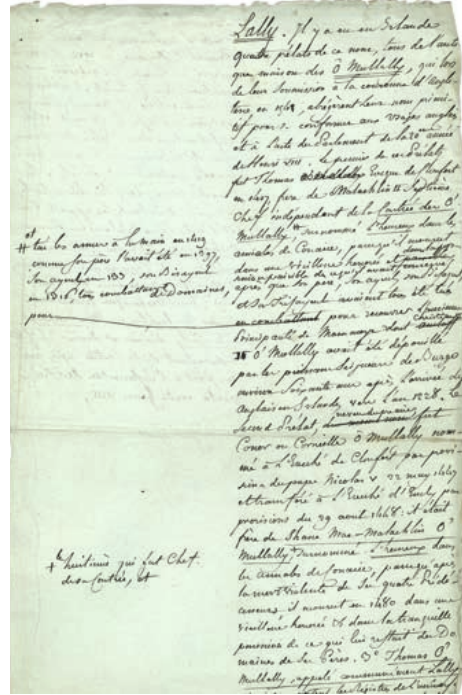 Lally. Il y a eu en Irlande
quatre prélats de ce nom, tous de l'anti
que maison des O Mullally, qui lors
de leur soumission à la couronne d'Angle
terre en 1541, abrégèrent leur nom primi
tif pour se conformer aux usages anglais
et à l'acte du Parlement de la 20me année
de Henri VIII. le premier de ces Prélats
fut Thomas Evêque de Clonfort
en frère de Malachlin
Chef indépendant de la Contrée des O'
Mullally, surnommé l'heureux dans les
annales de Conacie, parcequ'il mourut
dans une vieillesse honorée et
après que son père, son ayeul, son bisayeul
et son Trisayeul avaient tous été tués
en combattant pour recouvrer
Principauté de Maenmoye dont
O' Mullally avait été dépouillé
par le puissant Seigneur de Burgo
environ soixante ans après l'arrivée des
anglais en Irlande, vers l'an 1228. Le
second Prélat, fut
Conor ou Corneille O Mullally nom-
mé à l'Evêché de Clonfort par provi
sion du pape Nicolas V 22 may 1447
et transféré à l'Evêché d'Emly par
provisions du 29 aout 1448: il était
fère de Shane Mac-Malachlin O'
Mullally, surnommé l'heureux dans
les annales de Conacie, parcequ'après
la mort violente de ses quatre Prédé-
cesseurs il mourut en 1480 dans une
vieillesse honorée & dans la tranquille
possession de ce qui lui restait des Do
maines de ses Pères. 3° Thomas O'
Mullally, appelé communément Lally
et
# tué les armes à la main en
comme son père l'avait été en 1397,
son ayeul en son Bisayeul
en 1316, tous combattant
pour
+ huitième qui fut Chef
de sa Contrée, et